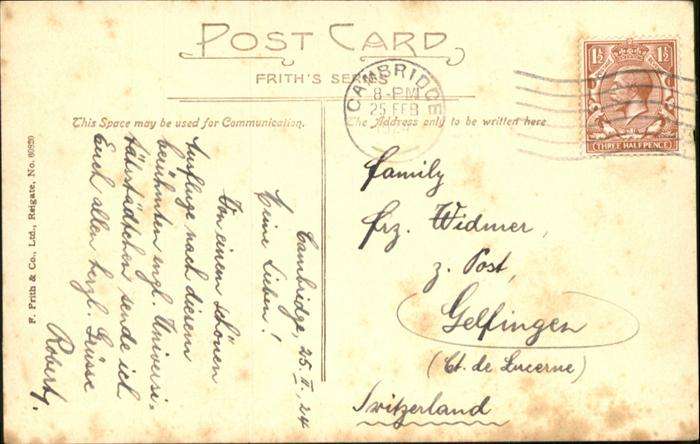 POST CARD
FRITH'S SERIES
CAMBRIDGE
8-PM
25 FEB
1½ 1½
THREE HALFPENCE
This Space may be used for Communication.
The Address only to be written here.
F. Frith & Co., Ltd., Reigate, No. 60820
Cambridge, 25. II. 24
Meine Lieben!
Von einem schönen
Ausfluge nach diesem
berühmten engl. Universi-
tätsstädtchen sende ich
Euch allen herzl. Grüsse
Robert.
Family
frz. Widmer,
z. Post,
Gelfingen
(Ct. de Lucerne)
Switzerland